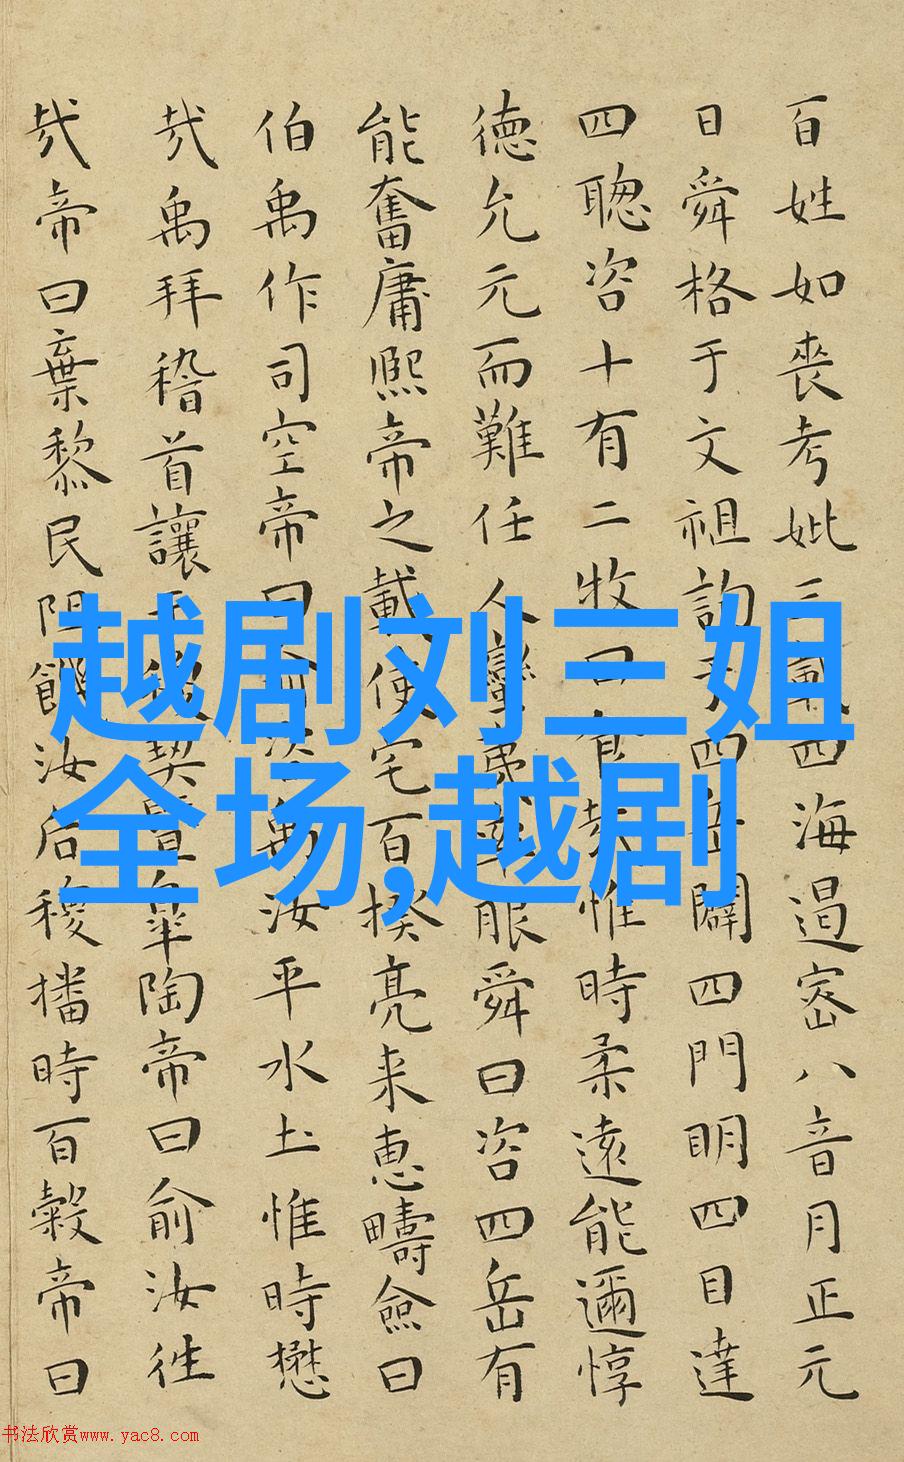 百姓如喪考妣三載四海遏密八音月正元
日舜格于文祖詢于四岳闢四門明四目達
四聰咨十有二牧曰食哉惟時柔遠能邇惇
德允元而難任人蠻夷率服舜曰咨四岳有
能奮庸熙帝之載使宅百揆亮来惠疇僉曰
伯禹作司空帝曰俞咨禹汝平水土惟時懋
哉禹拜稽首讓于稷契暨皐陶帝曰俞汝往
哉帝曰棄黎民阻飢汝后稷播時百穀帝曰
越剧刘三姐
全场,越剧
书法欣赏www.yac8.com